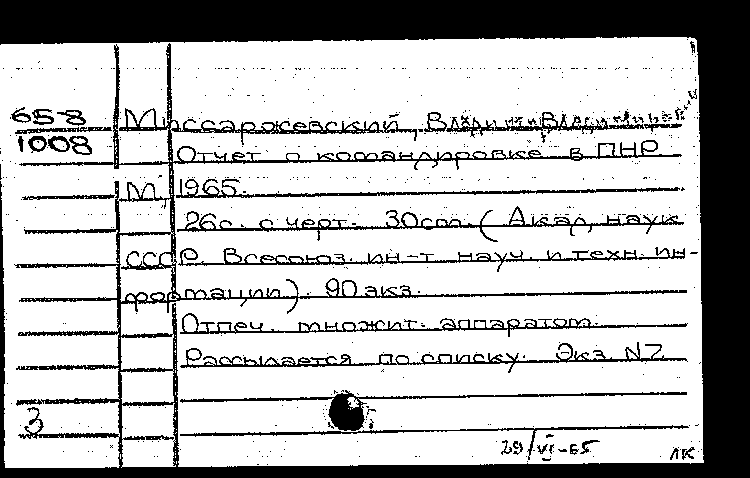 65-8 Миссарожевский, Влади
1008 Отчет о командировке в ПНР.
М, 1965.
26с. с черт. 30см. (Акад, наук
СССР. Всесоюз. ин-т науч. и техн. ин-
формации). 90 экз.
Отпеч. множит. аппаратом.
Рассылается по списку. Экз. N2
3
29/VI-65 ЛК